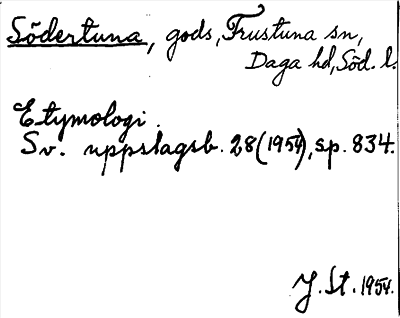 Södertuna, gods, Frustuna sn,
Daga hd, Söd. l.
Etymologi.
Sv. uppslagsb. 28 (1954), sp. 834.
J. St. 1954.